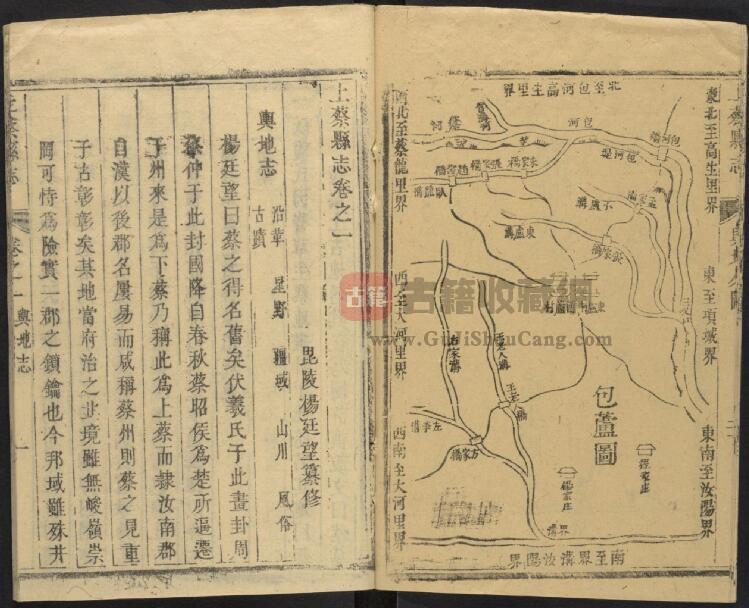 北至包河高生里界
東北至高生里界
東至項城界
東南至汝陽界
南至界溝汝陽界
西南至大河里界
西至大河里界
西北至蔡龍里界
包蘆圖
包河
包河
包河堤
張家橋
小盧溝
東盧溝
王家橋
古家溝
方家橋
楊家庄
界溝
古籍
古籍收藏網
www.GuJiShouCang.com
上蔡縣志卷之一
毘陵楊廷望纂修
輿地志
沿革 星野 疆域 山川 風俗
古蹟
楊廷望曰蔡之得名舊矣伏羲氏于此畫卦周
蔡仲于此封國降自春秋蔡昭侯為楚所逼遷
于州來是為下蔡乃稱此為上蔡而隸汝南郡
自漢以後郡名屢易而咸稱蔡州則蔡之見重
于古彰彰矣其地當府治之北境雖無峻嶺崇
岡可恃為險實一郡之鎖鑰也今邦域雖殊井
上蔡縣志
卷之一
輿地志
一